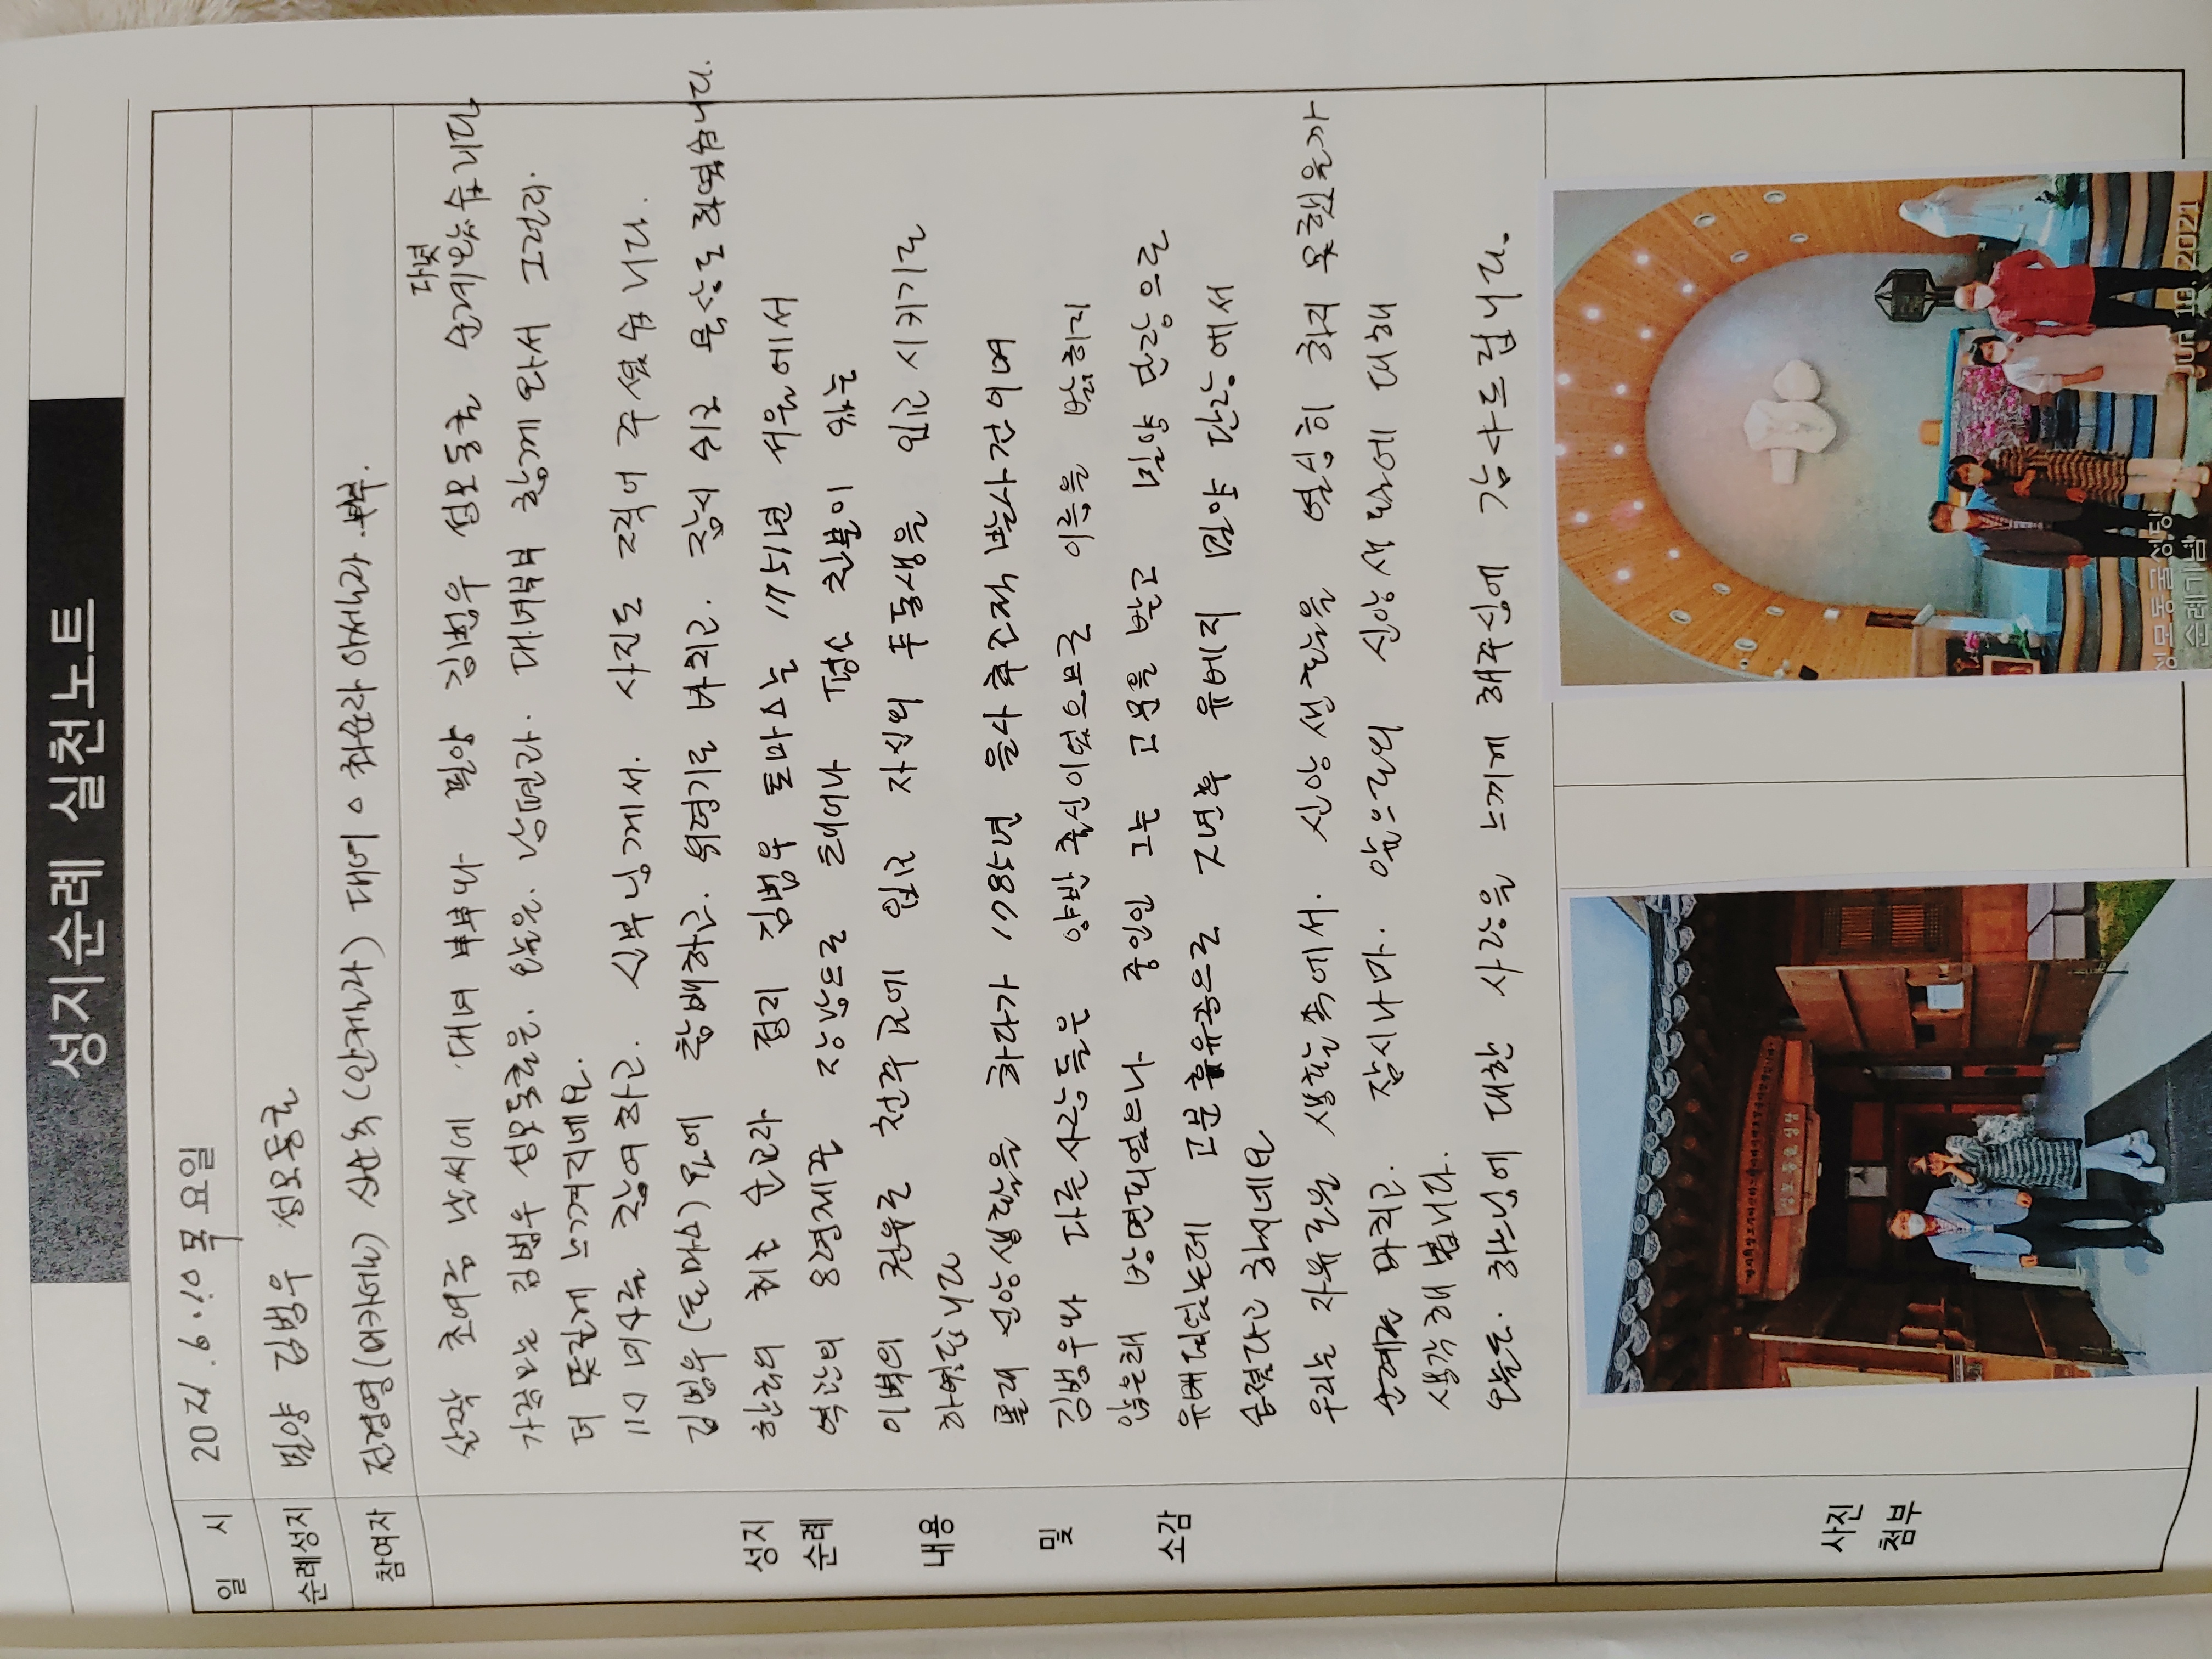 성지순례 실천노트
일 시 2021.6.10 목요일
순례성지 밀양 김범우 성모동굴
참여자 전경영(미카엘) 신순옥(안젤라) 대녀 최순라 아셀라 부부.
산딱 초여름 날씨에 대녀 부부와 밀양 김범우 성모동굴 순례 다녀 왔습니다
가끔 오는 김범우 성모동굴을. 오늘은. 남편과. 대녀부부 함께 와서 그런지.
더 뜻깊게 느껴지네요.
11시 미사를 참여하고. 신부님께서. 사진도 찍어 주셨습니다.
김범우(토마스) 묘에 참배하고. 위령기도 바치고. 잠시 쉬고 묵상도 하였습니다.
한국의 최초 순교자 김범우 토마스는 1751년 서울에서
역관의 8형제중 장남으로 태어나 평소 친분이 있는
이벽의 권유로 천주교에 입교 자신의 두 동생을 입교 시키기도
하였답니다
몰래 신앙생활을 하다가 1785년 을사추조적발사건이며
김범우와 다른 사람들은 양반 출신이었으므로 이름을 밝히지
않은채 방면되었으나 중인인 그는 고문을 받고 밀양 단장으로
유배되었는데 고문 휴유증으로 2년후 유배지 밀양 단장에서
순절했다고 하시네요
우리는 자유로운 생활속에서. 신앙생활을 열심히 하지 못했을까
순례를 마치고. 잠시나마. 앞으로의 신앙생활에 대해
생각해 봅니다.
오늘도. 하느님에 대한 사랑을 느끼게 해주심에 감사드립니다.
성지
순례
내용
및
소감
사진
첨부
성모동굴성당
성모동굴성당
순례기념
Jun. 10. 2021